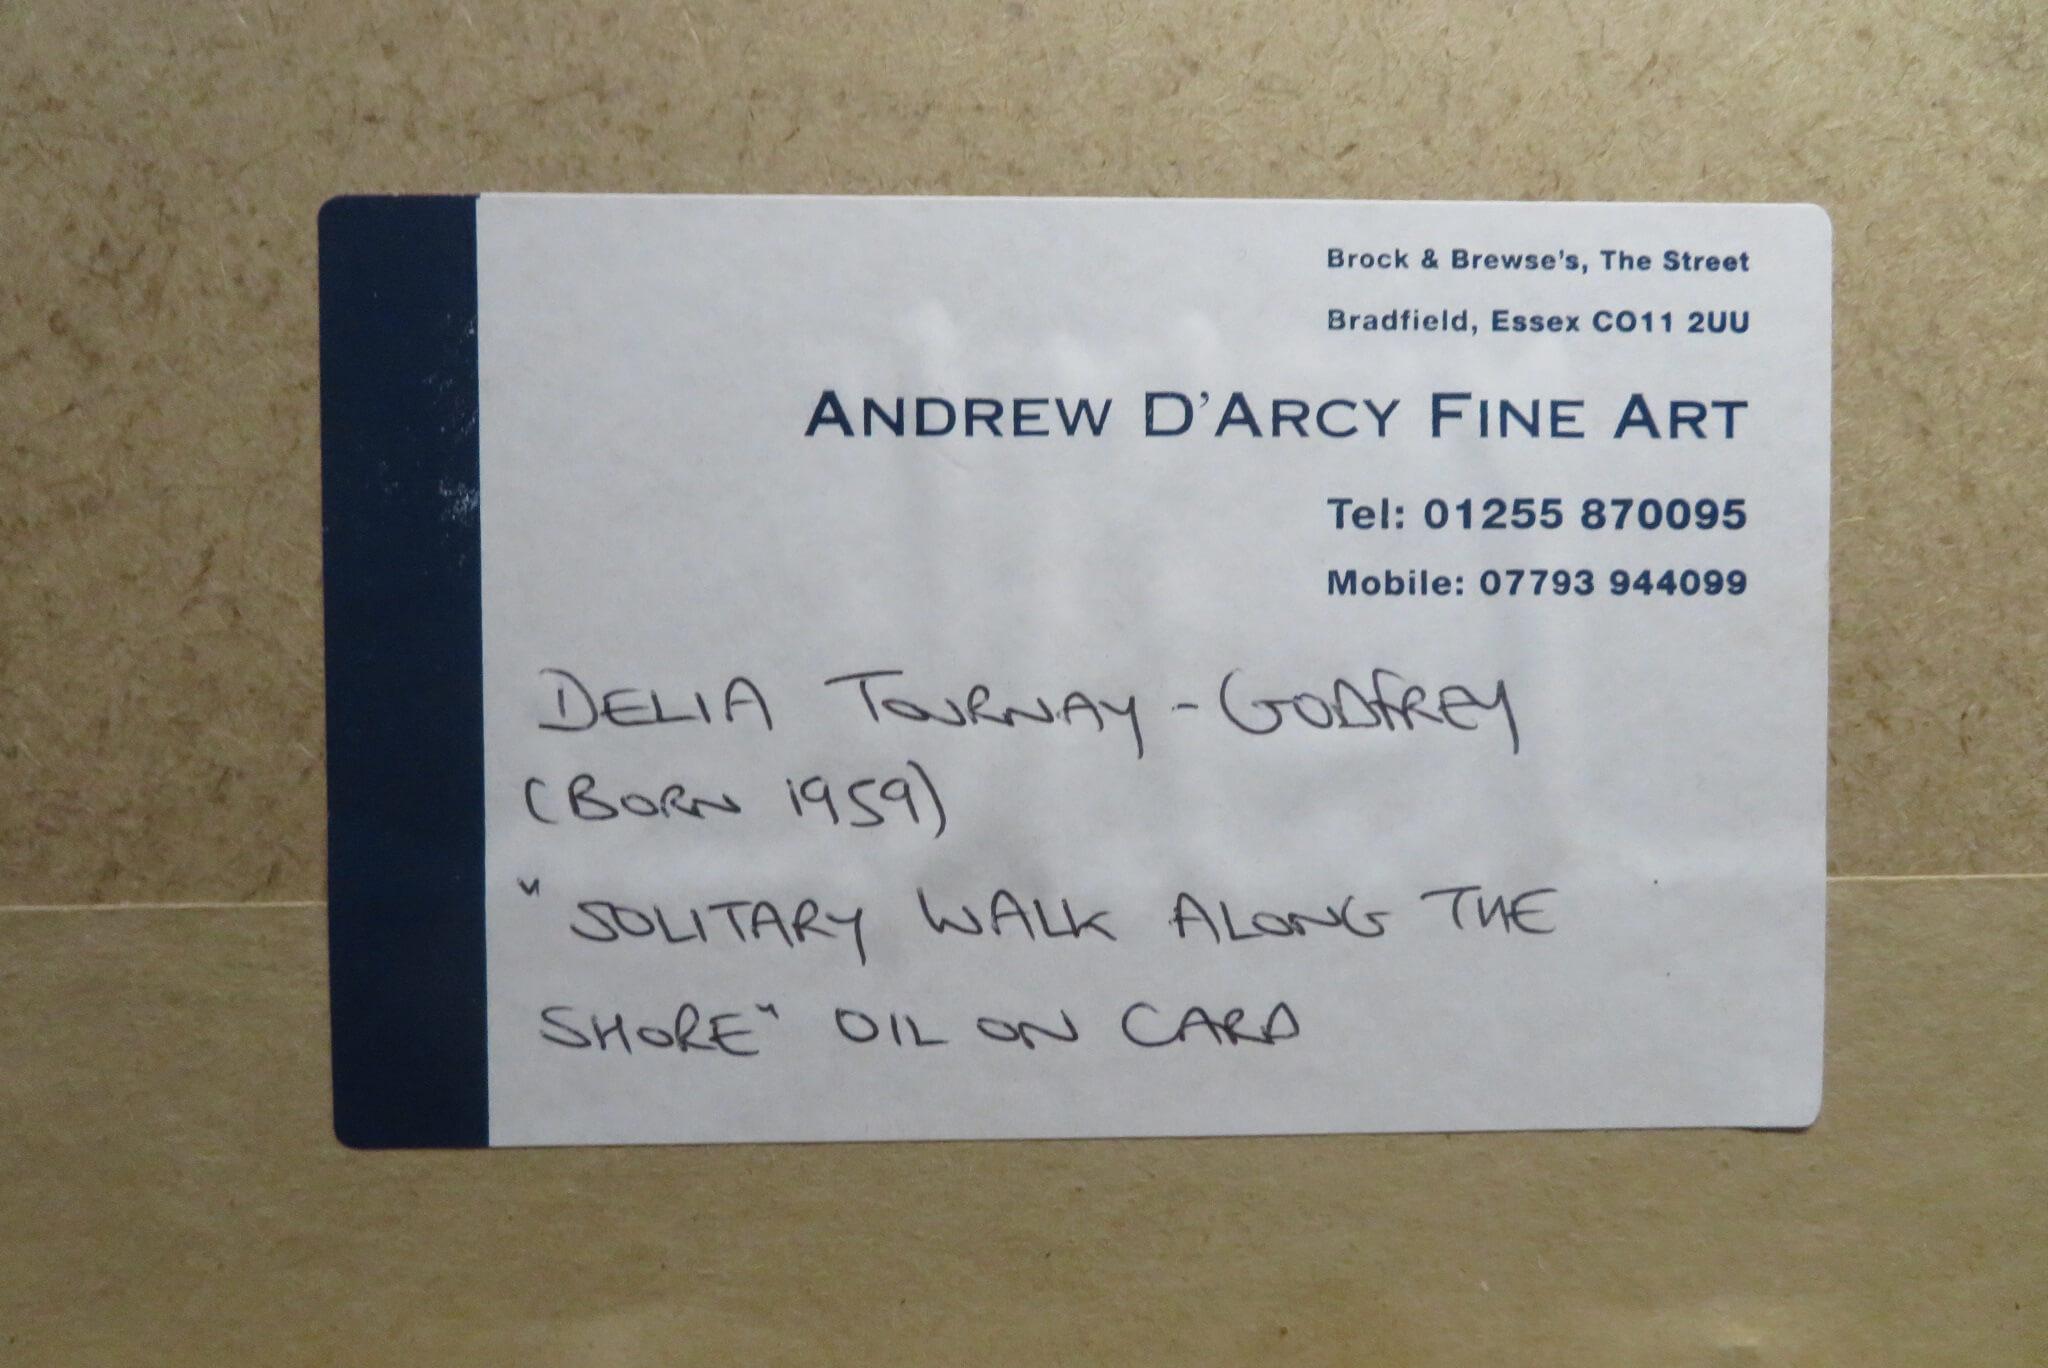 Brock & Brewse's, The Street
Bradfield, Essex CO11 2UU
ANDREW D'ARCY FINE ART
Tel: 01255 870095
Mobile: 07793 944099
DELIA TOURNAY-GODFREY
(BORN 1959)
"SOLITARY WALK ALONG THE
SHORE" OIL ON CARD